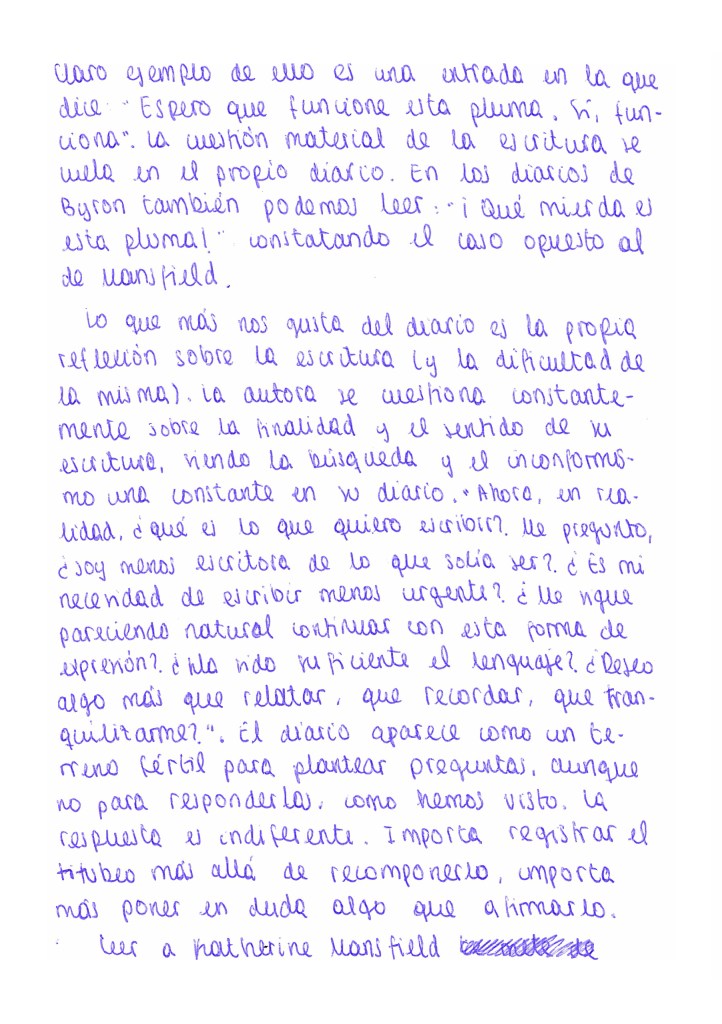 claro ejemplo de ello es una entrada en la que
dice: "Espero que funcione esta pluma. Sí, fun-
ciona". La cuestión material de la escritura se
cuela en el propio diario. En los diarios de
Byron también podemos leer: "¡Qué mierda es
esta pluma!" constatando el caso opuesto al
de Mansfield.
Lo que más nos gusta del diario es la propia
reflexión sobre la escritura (y la dificultad de
la misma). La autora se cuestiona constante-
mente sobre la finalidad y el sentido de su
escritura, siendo la búsqueda y el inconformis-
mo una constante en su diario. "Ahora, en rea-
lidad, ¿qué es lo que quiero escribir?. Me pregunto,
¿soy menos escritora de lo que solía ser?. ¿Es mi
necesidad de escribir menos urgente?. ¿Me sigue
pareciendo natural continuar con esta forma de
expresión?. ¿Ha sido suficiente el lenguaje?. ¿Deseo
algo más que relatar, que recordar, que tran-
quilizarme?". El diario aparece como un te-
rreno fértil para plantear preguntas, aunque
no para responderlas, como hemos visto. La
respuesta es indiferente. Importa registrar el
titubeo más allá de recomponerlo, importa
más poner en duda algo que afirmarlo.
Leer a Katherine Mansfield